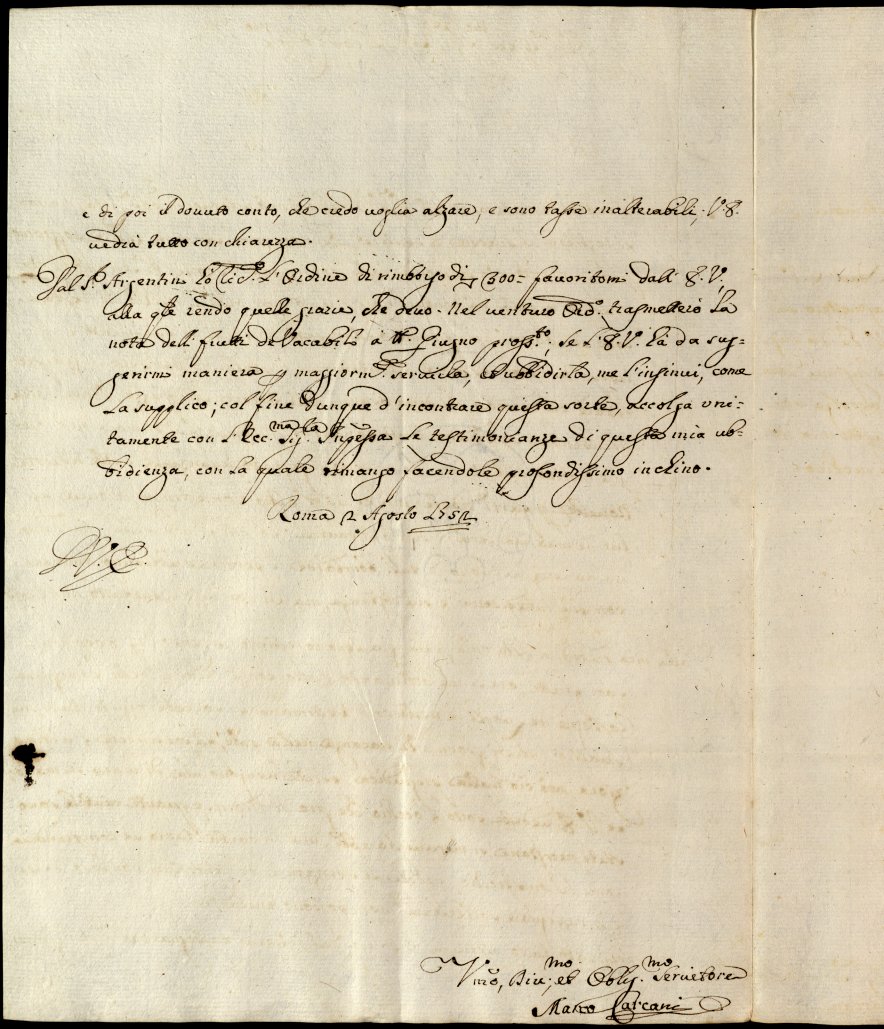 e di poi il dovuto conto, che credo voglia alzare, e sono tasse inalterabili. V. E.
vedrà tutto con chiarezza.
Dal S.r Argentini L'Ordine di rimborso di 300= favoritomi dall' E. V.
alla q'le rendo quelle grazie, che devo. Nel venturo Ord.o trasmetterò La
nota delli frutti de Vacabili à tt.o Giugno pross.to; se L'E. V. hà da sug=
gerirmi maniera p maggiorm.te servirla, et ubbidirla, me l'insinui, come
La supplico; col fine dunque d'incontrare questa sorte, accolga uni=
tamente con L'Ecc.ma Sig.ra Le testimonianze di questa mia ub=
bidienza, con La quale rimango facendole profondissimo inchino.
Roma 2 Agosto 1752
S. V. E.
V'mo, Div.mo, et Oblig.mo Servitore
Marco Carcani